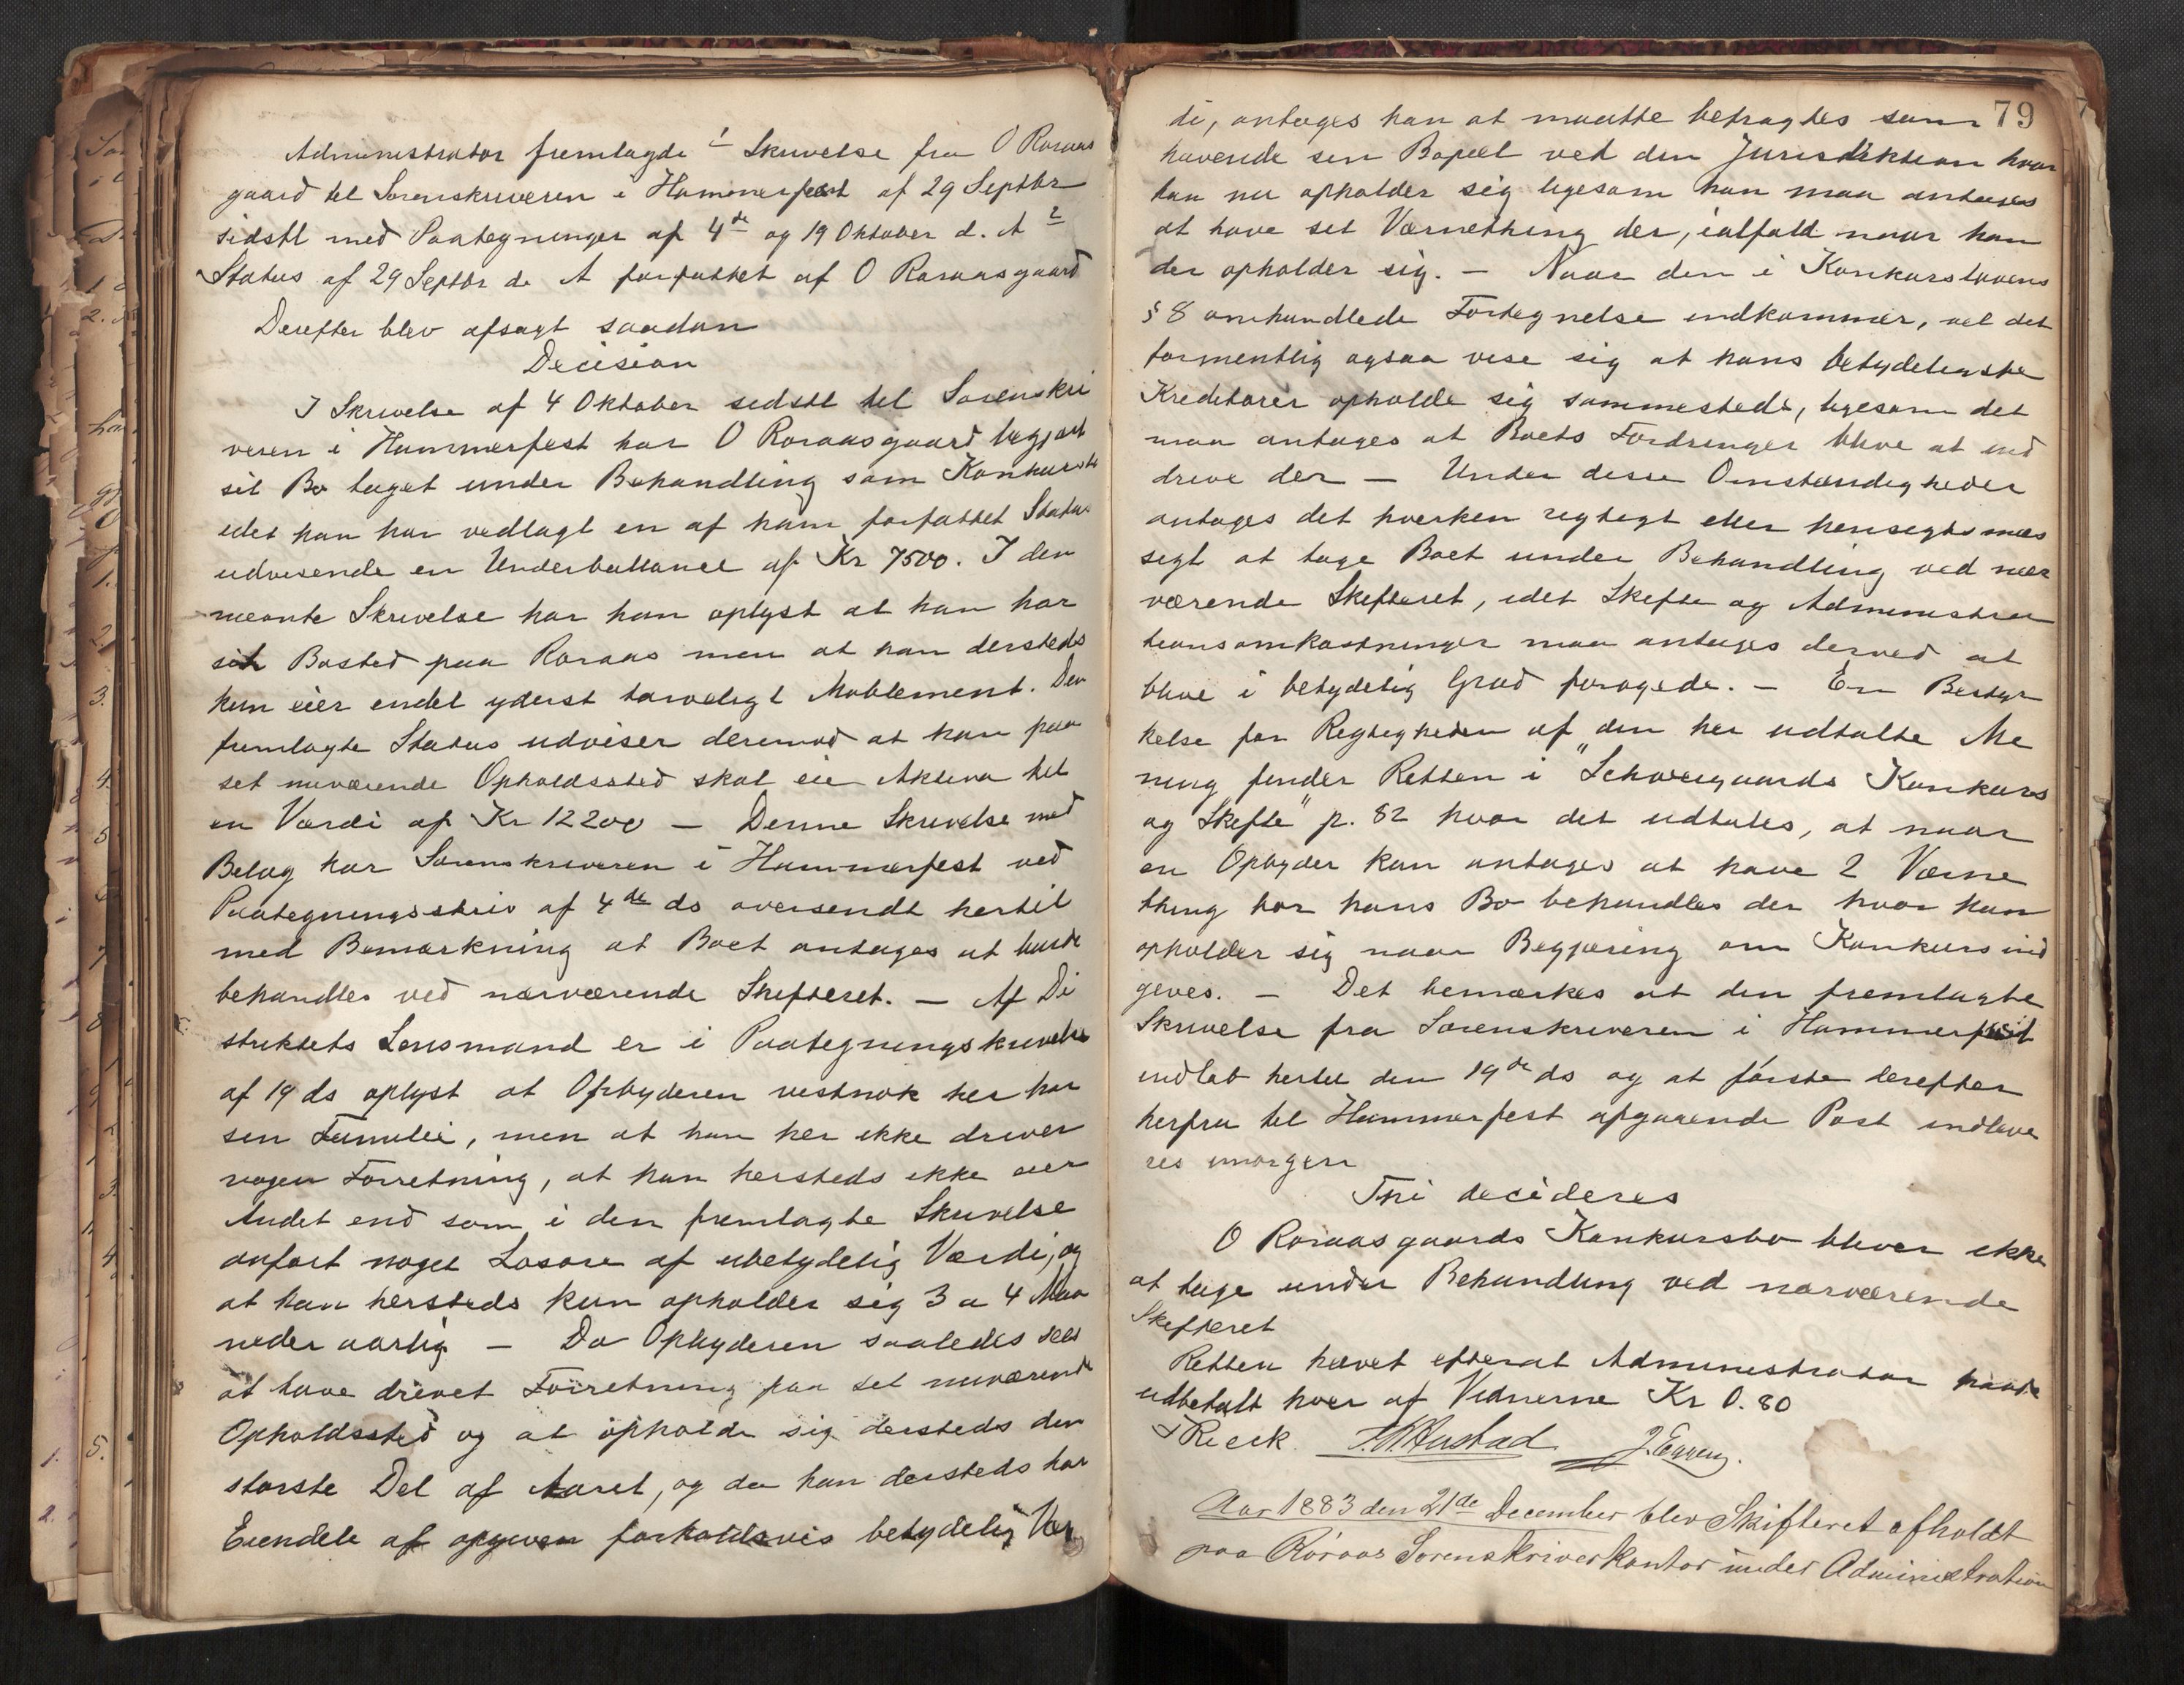 Administrator fremlagde 1 Skrivelse fra O Roraas
gaard til Sorenskriveren i Hammerfest af 29 Septbr
sidstl med Paategninger af 4de og 19 Oktober d. A 2
Status af 29 Septbr d. A forfattet af O Roraasgaard
Derefter blev afsagt saadan
Decision
I Skrivelse af 4 Oktober sidstl til Sorenskri
veren i Hammerfest har O Roraasgaard begjært
sit Bo taget under Behandling som Konkursbo
idet han har vedlagt en af ham forfattet Status
udvisende en Underballance af Kr 7500. I den
nævnte Skrivelse har han oplyst at han har
sit Bosted paa Roraas men at han dersteds
kun eier endel yderst tarveligt Moblement. Den
fremlagte Status udviser derimod at han paa
sit nuværende Opholdssted skal eie Aktiva til
en Værdi af Kr 12200 — Denne Skrivelse med
Belag har Sorenskriveren i Hammerfest ved
Paategningsskriv af 4de ds oversendt hertil
med Bemærkning at Boet antages at burde
behandles ved nærværende Skifteret. — Af Di
striktets Lensmand er i Paategningsskrivelse
af 19 ds oplyst at Opbyderen vistnok her har
sin Familie, men at han her ikke driver
nogen Forretning, at han hersteds ikke eier
Andet end som i den fremlagte Skrivelse
anført noget Løsøre af ubetydelig Værdi, og
at han hersteds kun opholder sig 3 a 4 Maa
neder aarlig — Da Opbyderen saaledes sees
at have drevet Forretning paa sit nuværende
Opholdssted og at opholde sig dersteds den
største Del af Aaret, og da han dersteds har
Eiendele af opgiven forholdsvis betydelig Vær
79
di, antages han at maatte betragtes som
havende sin Bopæl ved den Jurisdiktion hvor
han nu opholder sig ligesom han maa antages
at have sit Værnething der, ialfald naar han
der opholder sig. — Naar den i Konkurslovens
§ 8 omhandlede Fortegnelse indkommer, vil det
formentlig ogsaa vise sig at hans betydeligste
Kreditorer opholde sig sammesteds, ligesom det
maa antages at Boets Fordringer blive at ind
drive der — Under disse Omstændigheder
antages det hverken rigtigt eller hensigtsmæs
sigt at tage Boet under Behandling ved nær
værende Skifteret, idet Skifte og Administra
tionsomkostninger maa antages derved at
blive i betydelig Grad forøgede. — En Bestyr
kelse for Rigtigheden af den her udtalte Me
ning finder Retten i "Schweigaards Konkurs
og Skifte" p. 82 hvor det udtales, at naar
en Opbyder kan antages at have 2 Værne
thing bør hans Bo behandles der hvor han
opholder sig naar Begjæring om Konkurs ind
gives. — Det bemærkes at den fremlagte
Skrivelse fra Sorenskriveren i Hammerfest
indløb hertil den 19de ds og at første derefter
herfra til Hammerfest afgaaende Post indleve
res imorgen
Thi decideres
O Roraasgaards Konkursbo bliver ikke
at tage under Behandling ved nærværende
Skifteret
Retten hævet efterat Administrator havde
udbetalt hver af Vidnerne Kr 0.80
Rieck. Hustad J. Eggen.
Aar 1883 den 21de December blev Skifteret afholdt
paa Röraas Sorenskriverkontor under Administration